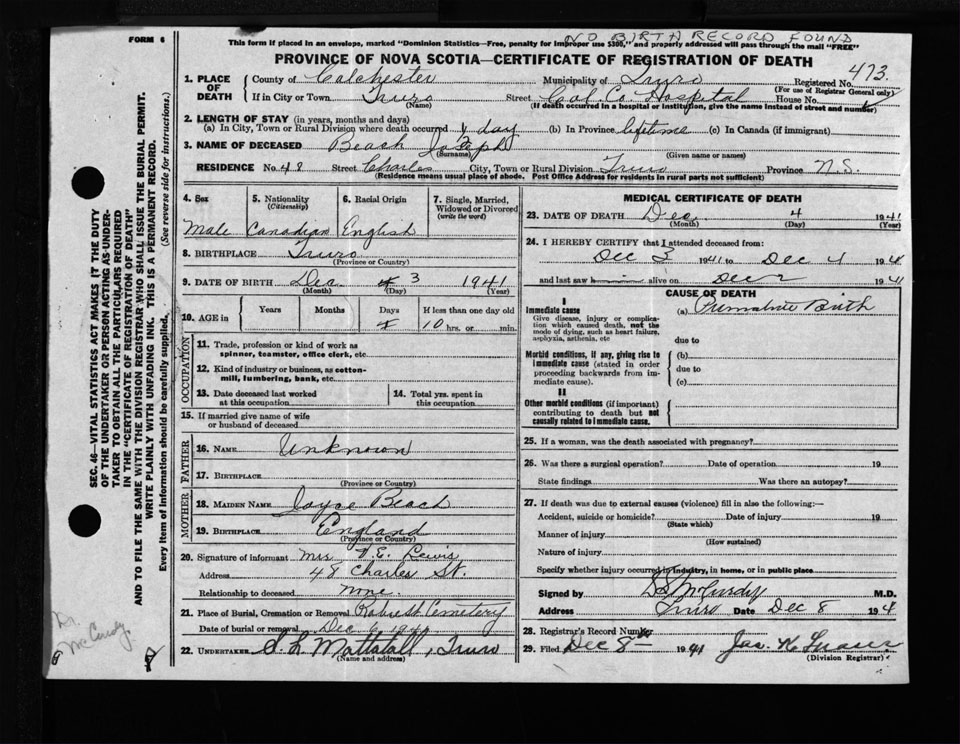 NO BIRTH RECORD FOUND
FORM 6
This form if placed in an envelope, marked "Dominion Statistics—Free, penalty for improper use $300," and properly addressed will pass through the mail "FREE"
PROVINCE OF NOVA SCOTIA—CERTIFICATE OF REGISTRATION OF DEATH
1. PLACE OF DEATH County of Colchester Municipality of Truro Registered No. 473.
(For use of Registrar General only)
If in City or Town Truro Street Col. Co. Hospital House No.
(Name) (If death occurred in a hospital or institution, give the name instead of street and number)
2. LENGTH OF STAY (in years, months and days)
(a) In City, Town or Rural Division where death occurred 1 day (b) In Province lifetime (c) In Canada (if immigrant)
3. NAME OF DECEASED Beach Joseph
(Surname) (Given name or names)
RESIDENCE No. 48 Street Charles City, Town or Rural Division Truro Province N.S.
(Residence means usual place of abode. Post Office Address for residents in rural parts not sufficient)
4. Sex 5. Nationality (Citizenship) 6. Racial Origin 7. Single, Married, Widowed or Divorced (write the word)
Male Canadian English
8. BIRTHPLACE Truro
(Province or Country)
9. DATE OF BIRTH Dec 3 1941
(Month) (Day) (Year)
10. AGE in Years Months Days If less than one day old
10 hrs. or min.
OCCUPATION
11. Trade, profession or kind of work as spinner, teamster, office clerk, etc.
12. Kind of industry or business, as cotton-mill, lumbering, bank, etc.
13. Date deceased last worked at this occupation
14. Total yrs. spent in this occupation
15. If married give name of wife or husband of deceased
FATHER
16. NAME Unknown
17. BIRTHPLACE
(Province or Country)
MOTHER
18. MAIDEN NAME Joyce Beach
19. BIRTHPLACE England
(Province or Country)
20. Signature of informant Mrs E. Lewis
Address 48 Charles St.
Relationship to deceased none.
21. Place of Burial, Cremation or Removal Cemetery
Date of burial or removal Dec 6 1941
22. UNDERTAKER Mattatall, Truro
(Name and address)
MEDICAL CERTIFICATE OF DEATH
23. DATE OF DEATH Dec 4 1941
(Month) (Day) (Year)
24. I HEREBY CERTIFY that I attended deceased from:
Dec 3 1941 to Dec 4 1941
and last saw h alive on Dec 1941
CAUSE OF DEATH
I
Immediate cause
Give disease, injury or complication which caused death, not the mode of dying, such as heart failure, asphyxia, asthenia, etc
(a) Premature Birth
due to
Morbid conditions, if any, giving rise to immediate cause (stated in order proceeding backwards from immediate cause).
(b)
due to
(c)
II
Other morbid conditions (if important) contributing to death but not causally related to immediate cause.
25. If a woman, was the death associated with pregnancy?
26. Was there a surgical operation? Date of operation 19
State findings Was there an autopsy?
27. If death was due to external causes (violence) fill in also the following:—
Accident, suicide or homicide? Date of injury 19
(State which)
Manner of injury
(How sustained)
Nature of injury
Specify whether injury occurred in industry, in home, or in public place
Signed by McCurdy M.D.
Address Truro Date Dec 8 194
28. Registrar's Record Number
29. Filed Dec 8th 1941 Jas.
(Division Registrar)
SEC. 46—VITAL STATISTICS ACT MAKES IT THE DUTY
OF THE UNDERTAKER OR PERSON ACTING AS UNDER-
TAKER TO OBTAIN ALL THE PARTICULARS REQUIRED
IN THE "CERTIFICATE OF REGISTRATION OF DEATH"
AND TO FILE THE SAME WITH THE DIVISION REGISTRAR WHO SHALL ISSUE THE BURIAL PERMIT.
WRITE PLAINLY WITH UNFADING INK. THIS IS A PERMANENT RECORD.
Every item of information should be carefully supplied. (See reverse side for instructions.)
Dr. McCurdy